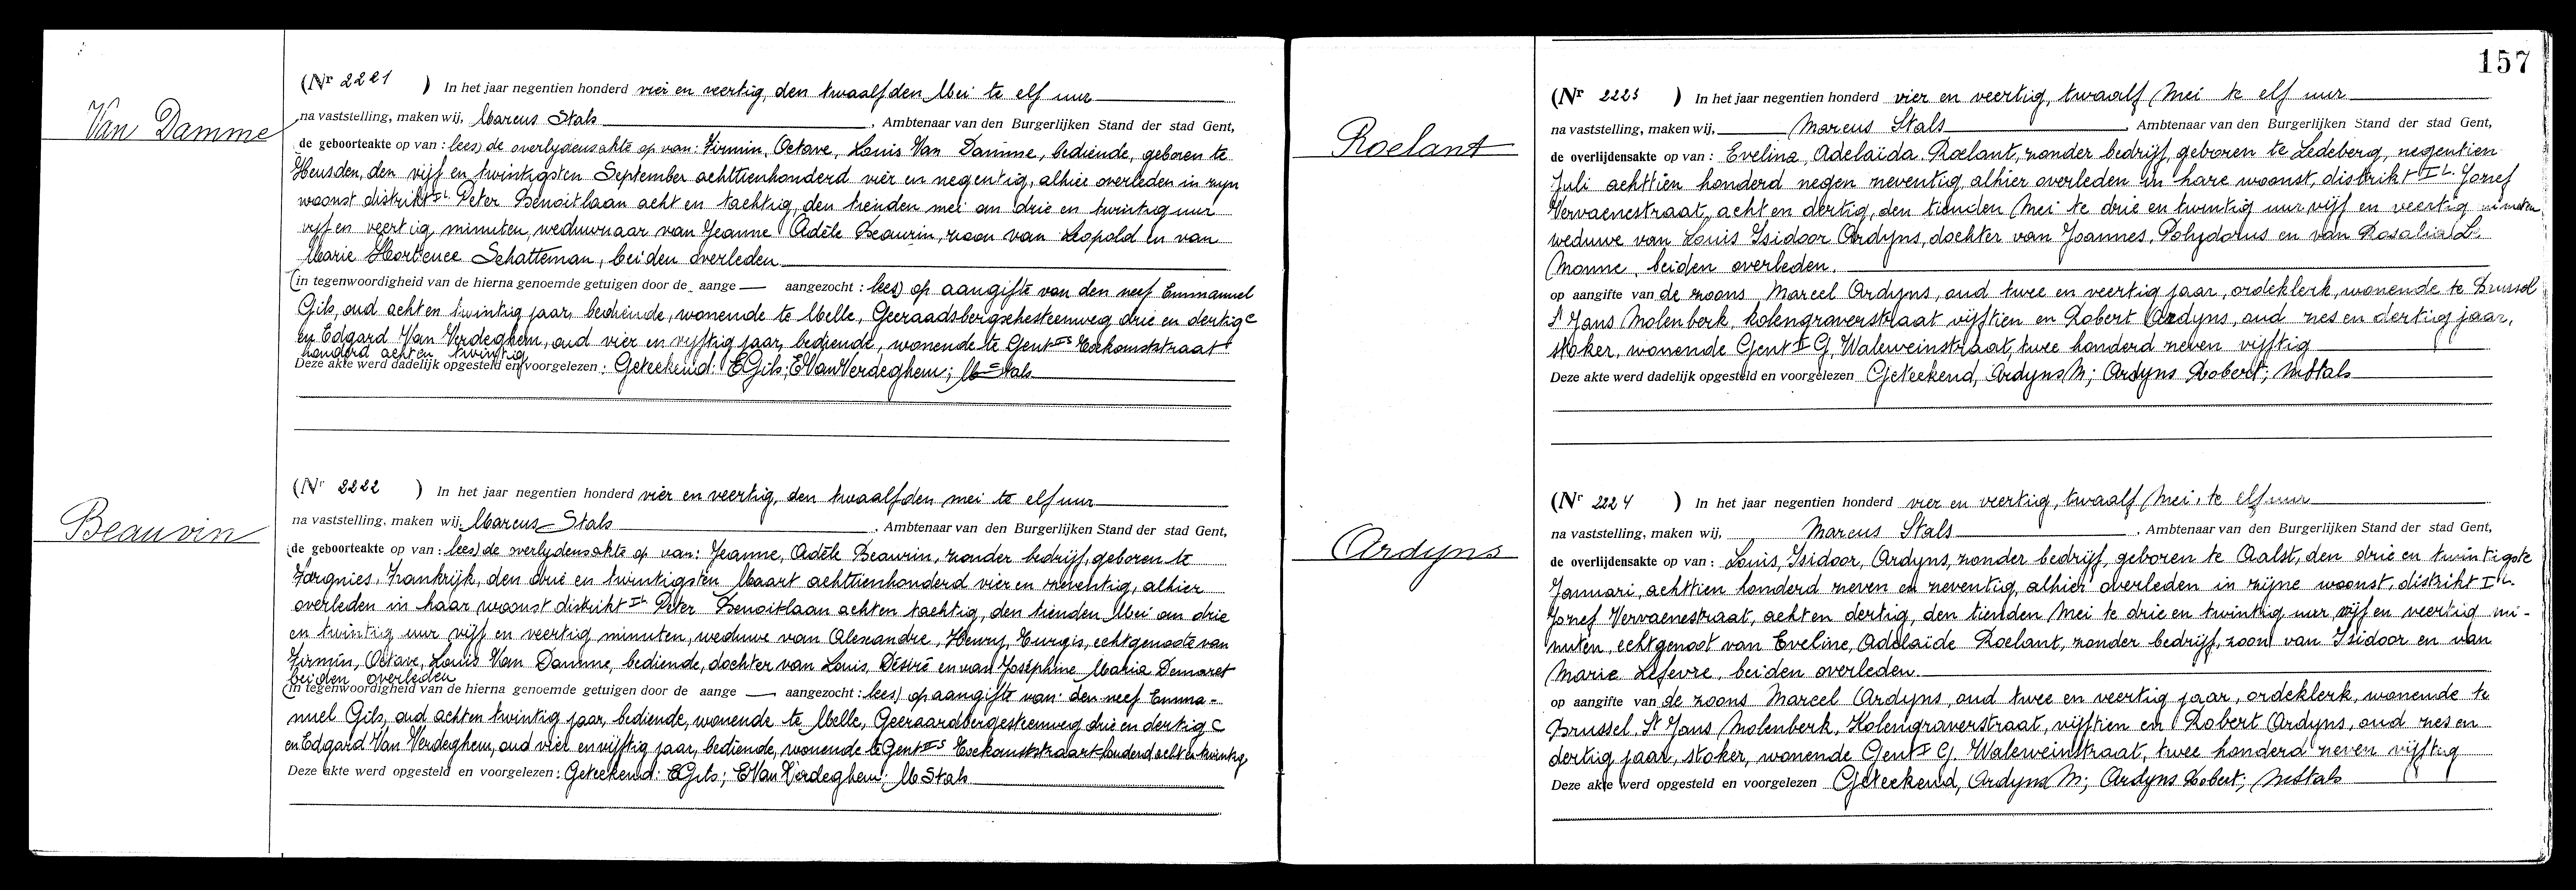 Van Damme
(Nr 2221 ) In het jaar negentien honderd vier en veertig, den twaalfden Mei te elf uur
na vaststelling, maken wij, Marcus Stals , Ambtenaar van den Burgerlijken Stand der stad Gent,
(de geboorteakte op van : lees) de overlydensakte op van: Firmin, Octave, Louis Van Damme, bediende, geboren te
Heusden, den vijf en twintigsten September achttienhonderd vier en negentig, alhier overleden in zyn
woonst distrikt IL Peter Benoitlaan acht en tachtig, den tienden mei om drie en twintig uur
vyf en veertig, minuten, weduwnaar van Jeanne Adèle Beauvin, zoon van Leopold en van
Marie Hortence Schatteman, beiden overleden
(in tegenwoordigheid van de hierna genoemde getuigen door de aange — aangezocht : lees) op aangifte van den neef Emmanuel
Gils, oud acht en twintig jaar, bediende, wonende te Melle, Geeraadsbergschesteenweg drie en dertig C
en Edgard Van Verdeghem, oud vier en vyftig jaar, bediende, wonende te Gent IS Toekomststraat
honderd acht en twintig
Deze akte werd dadelijk opgesteld en voorgelezen : Geteekend: EGils; EVanVerdeghem; M Stals
Beauvin
(Nr 2222 ) In het jaar negentien honderd vier en veertig, den twaalfden mei te elf uur
na vaststelling, maken wij, Marcus Stals , Ambtenaar van den Burgerlijken Stand der stad Gent,
(de geboorteakte op van : lees) de overlydensakte op van: Jeanne, Adèle Beauvin, zonder bedrijf, geboren te
Fargnies, Frankrijk, den drie en twintigsten Maart achttienhonderd vier en zeventig, alhier
overleden in haar woonst distrikt IL Peter Benoitlaan acht en tachtig, den tienden Mei om drie
en twintig uur vijf en veertig minuten, weduwe van Alexandre, Henry, Turgis, echtgenoote van
Firmin, Octave, Louis Van Damme, bediende, dochter van Louis, Désiré en van Joséphine Maria Demaret
beiden overleden
(in tegenwoordigheid van de hierna genoemde getuigen door de aange — aangezocht : lees) op aangifte van: den neef Emma-
nuel Gils, oud acht en twintig jaar, bediende, wonende te Melle, Geeraardbergesteenweg drie en dertig C
en Edgard Van Verdeghem, oud vier en vijftig jaar, bediende, wonende te Gent IS Toekomststraat honderd acht en twintig
Deze akte werd opgesteld en voorgelezen : Geteekend: EGils; EVanVerdeghem; M Stals
157
Roelant
(Nr 2223 ) In het jaar negentien honderd vier en veertig, twaalf Mei te elf uur
na vaststelling, maken wij, Marcus Stals , Ambtenaar van den Burgerlijken Stand der stad Gent,
de overlijdensakte op van : Evelina, Adelaïda Roelant, zonder bedrijf, geboren te Ledeberg, negentien
Juli achttien honderd negen neventig alhier overleden in hare woonst, distrikt IL Jozef
Vervaenestraat, acht en dertig, den tienden Mei te drie en twintig uur vijf en veertig minuten
weduwe van Louis Isidoor Ardyns, dochter van Joannes, Polydorus en van Rosalia
Monne, beiden overleden.
op aangifte van de zoons Marcel Ardyns, oud twee en veertig jaar, ordeklerk, wonende te Brussel
St Jans Molenberk, Kolengraverstraat vijftien en Robert Ardyns, oud zes en dertig jaar,
stoker, wonende Gent I G. Waleweinstraat, twee honderd zeven vijftig
Deze akte werd dadelijk opgesteld en voorgelezen Geteekend, Ardyns M; Ardyns Robert; MStals
Ardyns
(Nr 2224 ) In het jaar negentien honderd vier en veertig, twaalf Mei, te elf uur
na vaststelling, maken wij, Marcus Stals , Ambtenaar van den Burgerlijken Stand der stad Gent,
de overlijdensakte op van : Louis, Isidoor, Ardyns, zonder bedrijf, geboren te Aalst, den drie en twintigste
Januari, achttien honderd zeven en zeventig, alhier overleden in zijne woonst, distrikt IL
Jozef Vervaenestraat, acht en dertig, den tienden Mei te drie en twintig uur vijf en veertig mi-
nuten, echtgenoot van Eveline, Adelaïde Roelant, zonder bedrijf, zoon van Isidoor en van
Marie Lefevre, beiden overleden.
op aangifte van de zoons Marcel Ardyns, oud twee en veertig jaar, ordeklerk, wonende te
Brussel, St Jans Molenberk, Kolengraverstraat, vijftien en Robert Ardyns, oud zes en
dertig jaar, stoker, wonende Gent I G. Waleweinstraat, twee honderd zeven vijftig
Deze akte werd opgesteld en voorgelezen Geteekend, Ardyns M; Ardyns Robert; MStals